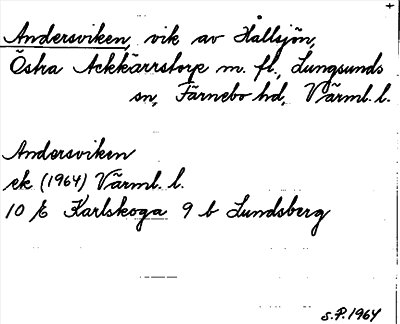 Andersviken, vik av Hållsjön,
Östra Ackkärrstorp m. fl., Lungsunds
sn, Färnebo hd, Värml. l.
Andersviken
ek (1964) Värml. l.
10 E Karlskoga 9 b Lundsberg
S.P. 1964